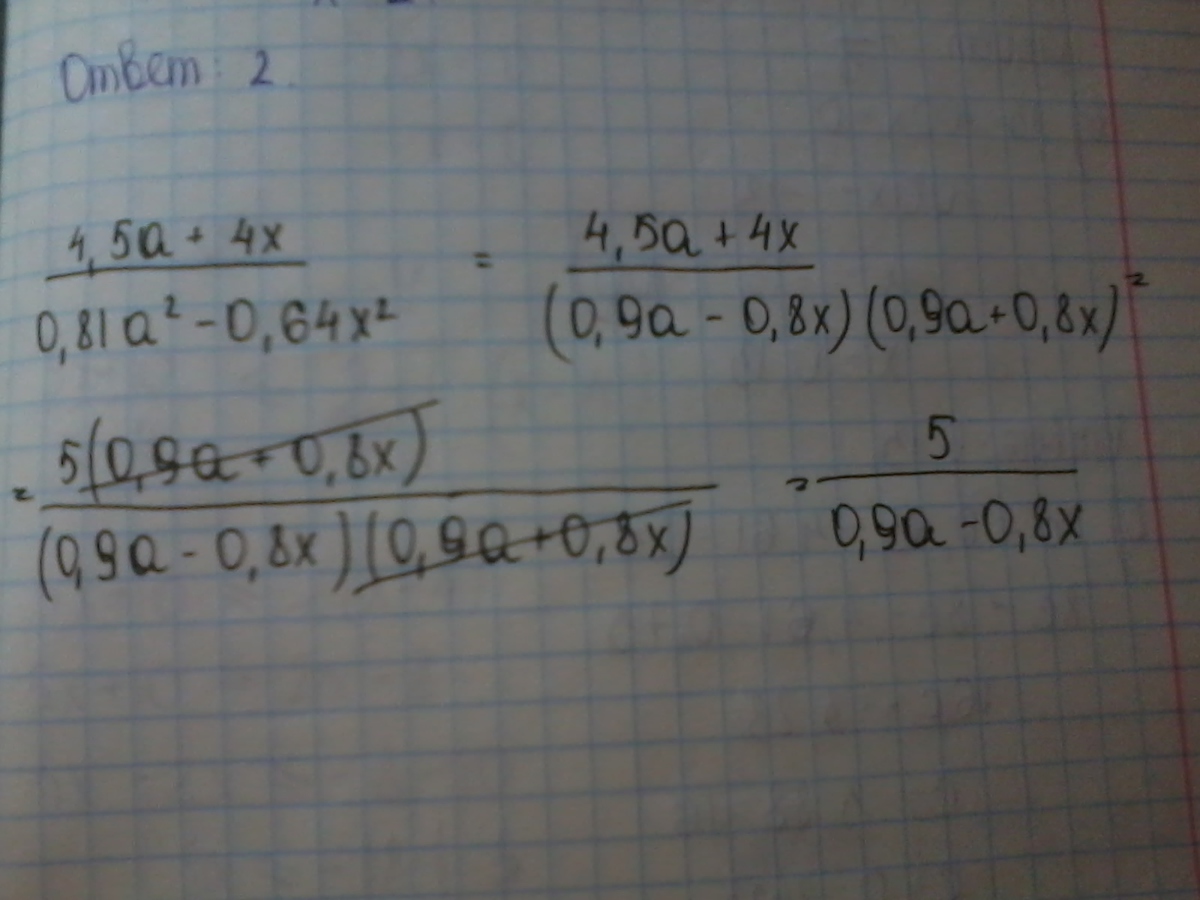 Ответ: 2.
4,5a + 4x / 0,81a² - 0,64x² = 4,5a + 4x / (0,9a - 0,8x)(0,9a+0,8x) =
= 5(0,9a + 0,8x) / (0,9a - 0,8x)(0,9a+0,8x) = 5 / 0,9a - 0,8x